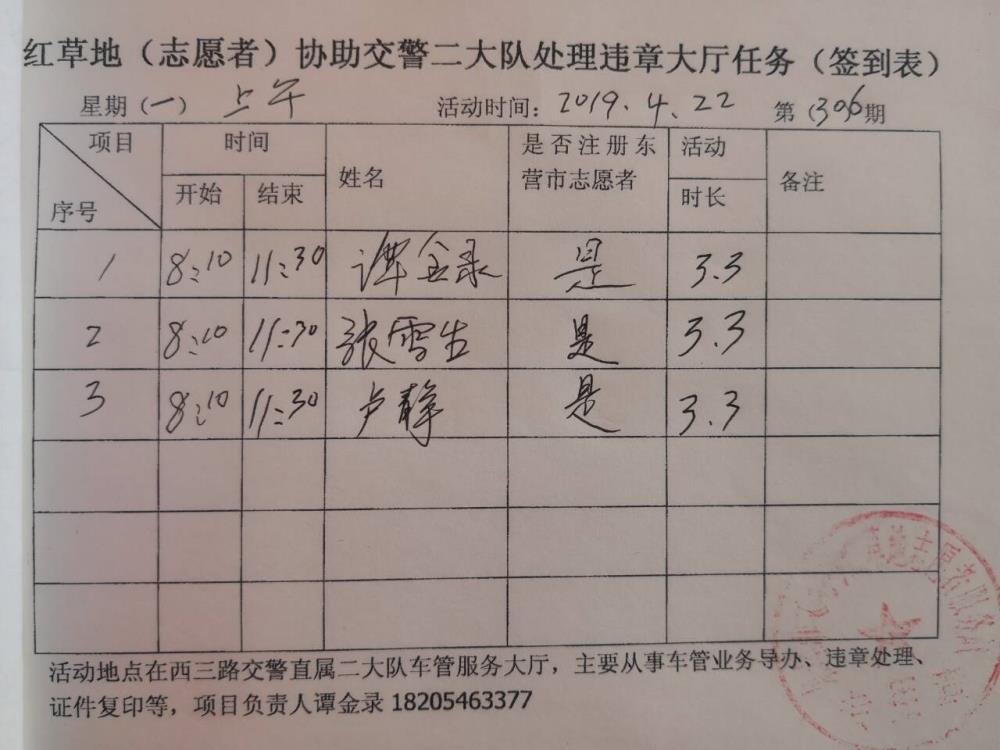 红草地（志愿者）协助交警二大队处理违章大厅任务（签到表）
星期（一） 上午 活动时间：2019.4.22 第（306期
项目 时间 姓名 是否注册东营市志愿者 活动时长 备注
序号 开始 结束
1 8:10 11:30 谭金录 是 3.3
2 8:10 11:30 张雪生 是 3.3
3 8:10 11:30 卢静 是 3.3
活动地点在西三路交警直属二大队车管服务大厅，主要从事车管业务导办、违章处理、
证件复印等，项目负责人谭金录 18205463377